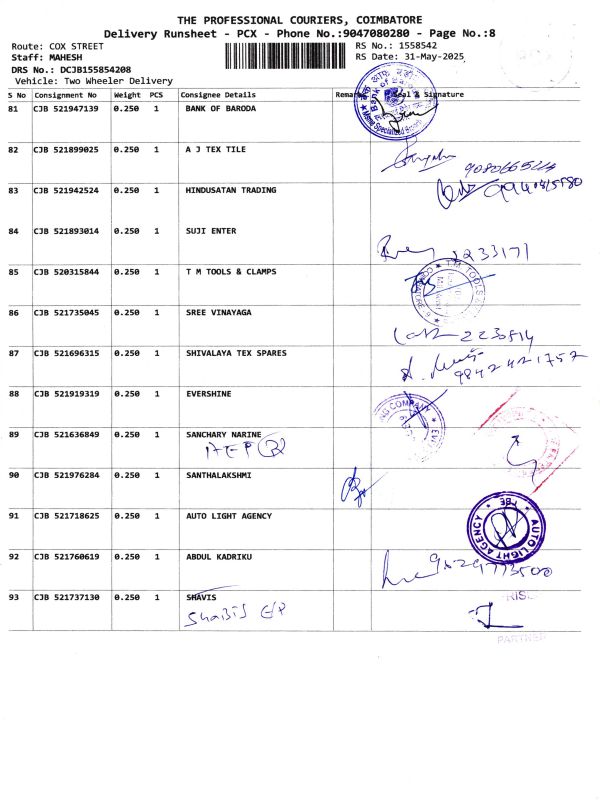 THE PROFESSIONAL COURIERS, COIMBATORE
Delivery Runsheet - PCX - Phone No.:9047080280 - Page No.:8
Route: COX STREET
RS No.: 1558542
Staff: MAHESH
RS Date: 31-May-2025
DRS No.: DCJB155854208
Vehicle: Two Wheeler Delivery
S No Consignment No Weight PCS Consignee Details Remarks Seal & Signature
81 CJB 521947139 0.250 1 BANK OF BARODA
82 CJB 521899025 0.250 1 A J TEX TILE
83 CJB 521942524 0.250 1 HINDUSATAN TRADING
84 CJB 521893014 0.250 1 SUJI ENTER
2233171
85 CJB 520315844 0.250 1 T M TOOLS & CLAMPS
86 CJB 521735045 0.250 1 SREE VINAYAGA
2230514
87 CJB 521696315 0.250 1 SHIVALAYA TEX SPARES
9842421752
88 CJB 521919319 0.250 1 EVERSHINE
89 CJB 521636849 0.250 1 SANCHARY NARINE
90 CJB 521976284 0.250 1 SANTHALAKSHMI
91 CJB 521718625 0.250 1 AUTO LIGHT AGENCY
AUTO LIGHT AGENCY
CBE
92 CJB 521760619 0.250 1 ABDUL KADRIKU
93 CJB 521737130 0.250 1 SHAVIS
ShaBiS
PARTNER